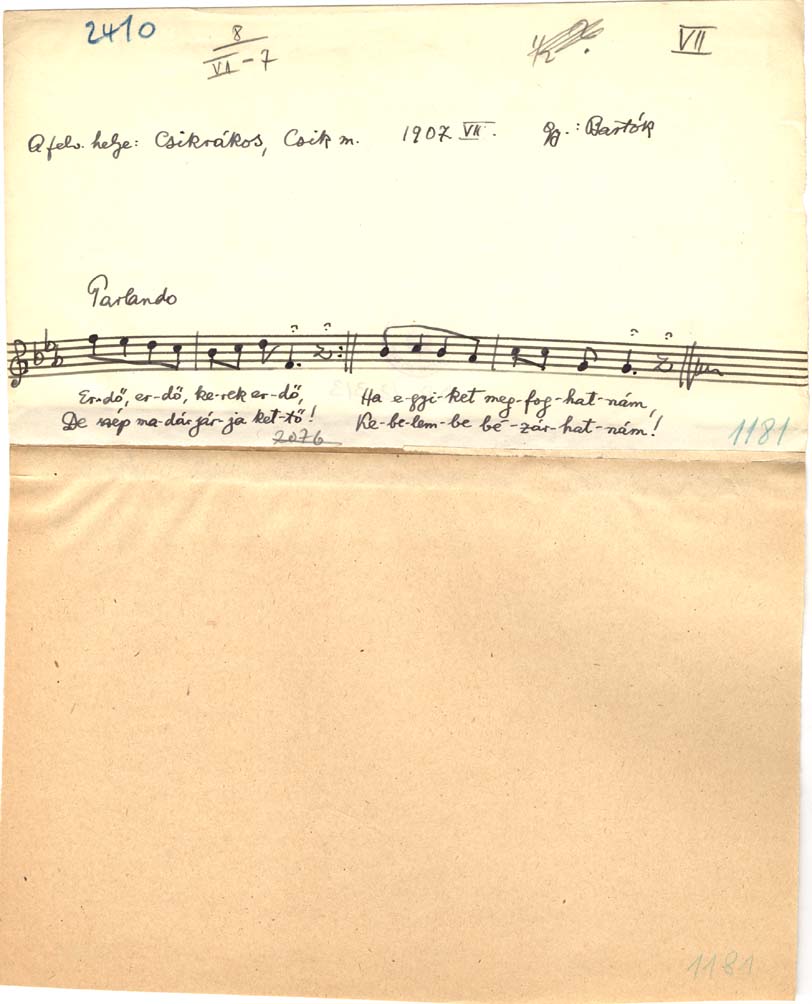 2410
8
VI - 7
VII
A felv. helye: Csikrákos, Csik m. 1907 VII. Gy.: Bartók
Parlando
Er-dő, er-dő, ke-rek er-dő, Ha e-gyi-ket meg-fog-hat-nám,
De szép ma-dár jár-ja ket-tő! Ke-be-lem-be bé-zár-hat-nám!
2076
1181
1181